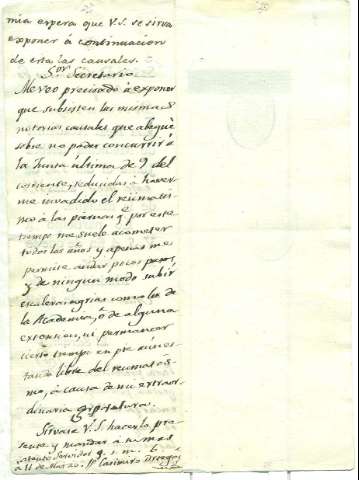 mia espera que V.S. se sirva
exponer à continuacion
de esta las causales.
S.or Secretario
Me veo precisado à exponer
que subsisten las mismas
notorias causales que alegué
sobre no poder concurrir à
la Junta última de 9 del
corriente, reducidas à haver-
me invadido el reumatis-
mo à las piernas q.e por este
tiempo me suele acometer
todos los años y apenas me
permite andar pocos pasos,
y de ningun modo subir
escaleras agrias como las de
la Academia, ò de alguna
extension, ni permanecer
cierto tiempo en pie aun es-
tando libre del reumatis-
mo, à causa de mi extraor-
dinaria
Sirvase V.S. hacerlo pre-
sente y mandar à su mas
atento Servidor q. s. m. B.
à 11 de Marzo. Casimiro